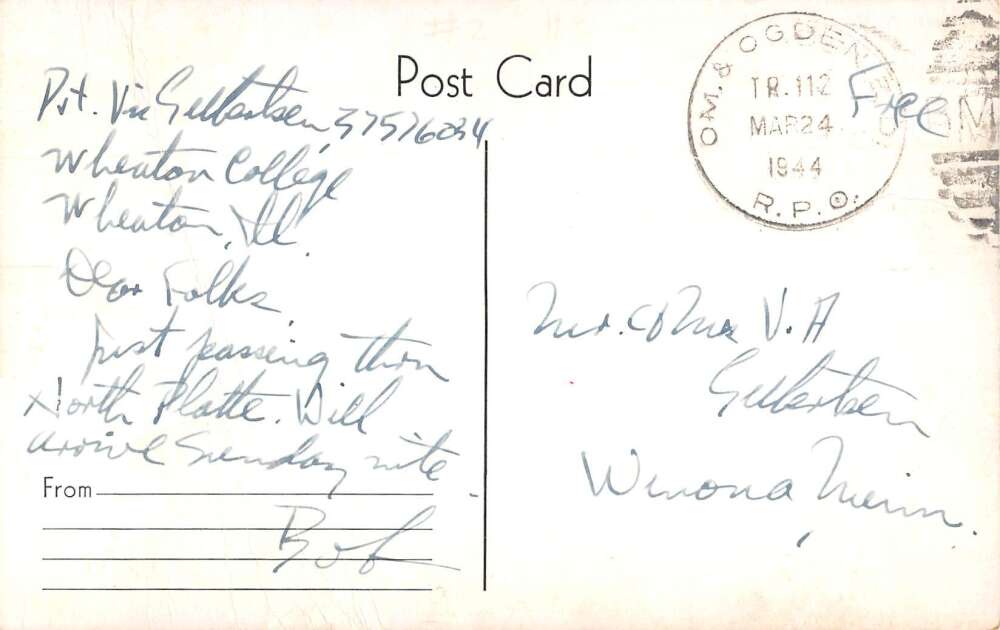 Post Card
OM. & OGDEN
TR. 112
MAR 24
1944
R.P.O.
Free
M
Pvt. Vic Gilbertsen, 37576034
Wheaton College
Wheaton, Ill.
Dear Folks,
Just passing thru
North Platte. Will
arrive Sunday nite.
From
Bob
Mr. & Mrs V. A
Gilbertsen
Winona, Minn.